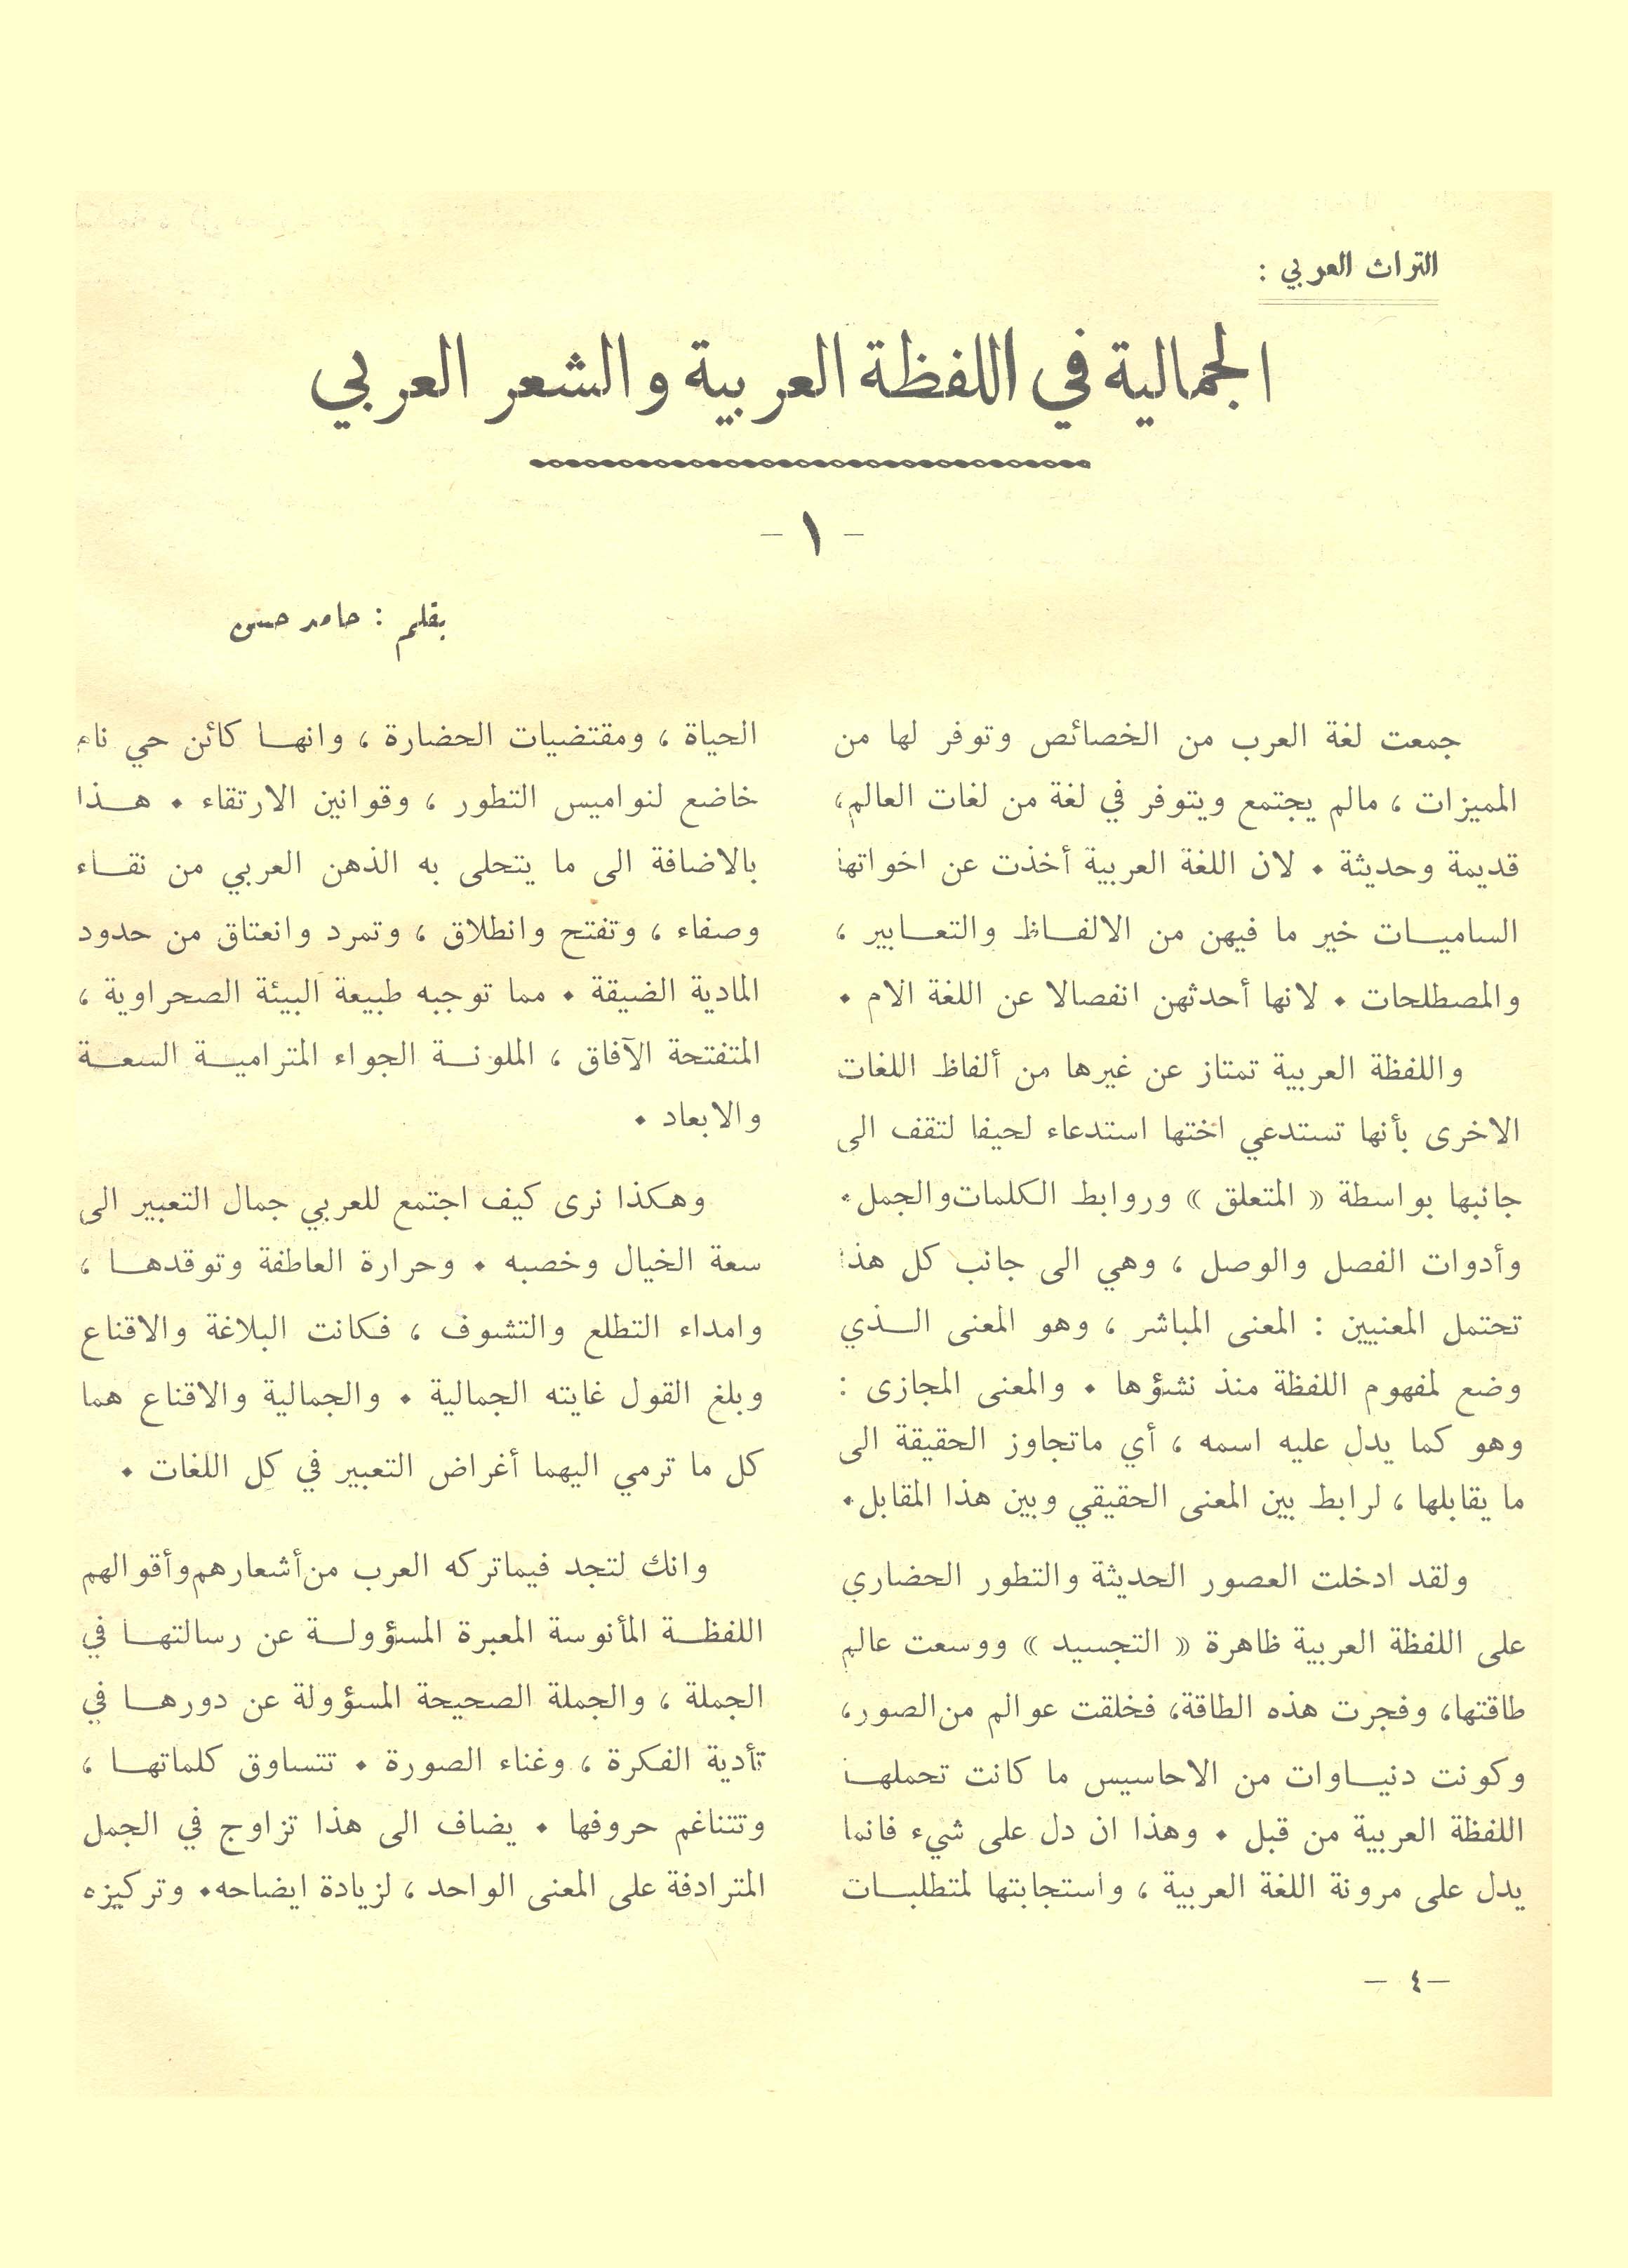 التراث العربي :
الجمالية في اللفظة العربية والشعر العربي
- ١ -
بقلم : حامد حسن
جمعت لغة العرب من الخصائص وتوفر لها من
المميزات ، مالم يجتمع ويتوفر في لغة من لغات العالم،
قديمة وحديثة . لان اللغة العربية أخذت عن اخواتها
الساميات خير ما فيهن من الالفاظ والتعابير ،
والمصطلحات . لانها أحدثهن انفصالا عن اللغة الام .
واللفظة العربية تمتاز عن غيرها من ألفاظ اللغات
الاخرى بأنها تستدعي اختها استدعاء لحيفا لتقف الى
جانبها بواسطة « المتعلق » وروابط الكلمات والجمل.
وأدوات الفصل والوصل ، وهي الى جانب كل هذا
تحتمل المعنيين : المعنى المباشر ، وهو المعنى الذي
وضع لمفهوم اللفظة منذ نشؤها . والمعنى المجازى :
وهو كما يدل عليه اسمه ، أي ماتجاوز الحقيقة الى
ما يقابلها ، لرابط بين المعنى الحقيقي وبين هذا المقابل.
ولقد ادخلت العصور الحديثة والتطور الحضاري
على اللفظة العربية ظاهرة « التجسيد » ووسعت عالم
طاقتها، وفجرت هذه الطاقة، فخلقت عوالم من الصور،
وكونت دنياوات من الاحاسيس ما كانت تحملها
اللفظة العربية من قبل . وهذا ان دل على شيء فانما
يدل على مرونة اللغة العربية ، واستجابتها لمتطلبات
الحياة ، ومقتضيات الحضارة ، وانها كائن حي نام
خاضع لنواميس التطور ، وقوانين الارتقاء . هذا
بالاضافة الى ما يتحلى به الذهن العربي من نقاء
وصفاء ، وتفتح وانطلاق ، وتمرد وانعتاق من حدود
المادية الضيقة . مما توجبه طبيعة البيئة الصحراوية ،
المتفتحة الآفاق ، الملونة الجواء المترامية السعة
والابعاد .
وهكذا نرى كيف اجتمع للعربي جمال التعبير الى
سعة الخيال وخصبه . وحرارة العاطفة وتوقدها ،
وامداء التطلع والتشوف ، فكانت البلاغة والاقناع
وبلغ القول غايته الجمالية . والجمالية والاقناع هما
كل ما ترمي اليهما أغراض التعبير في كل اللغات .
وانك لتجد فيماتركه العرب من أشعارهم وأقوالهم
اللفظة المأنوسة المعبرة المسؤولة عن رسالتها في
الجملة ، والجملة الصحيحة المسؤولة عن دورها في
تأدية الفكرة ، وغناء الصورة . تتساوق كلماتها ،
وتتناغم حروفها . يضاف الى هذا تزاوج في الجمل
المترادفة على المعنى الواحد ، لزيادة ايضاحه. وتركيزه
- ٤ -